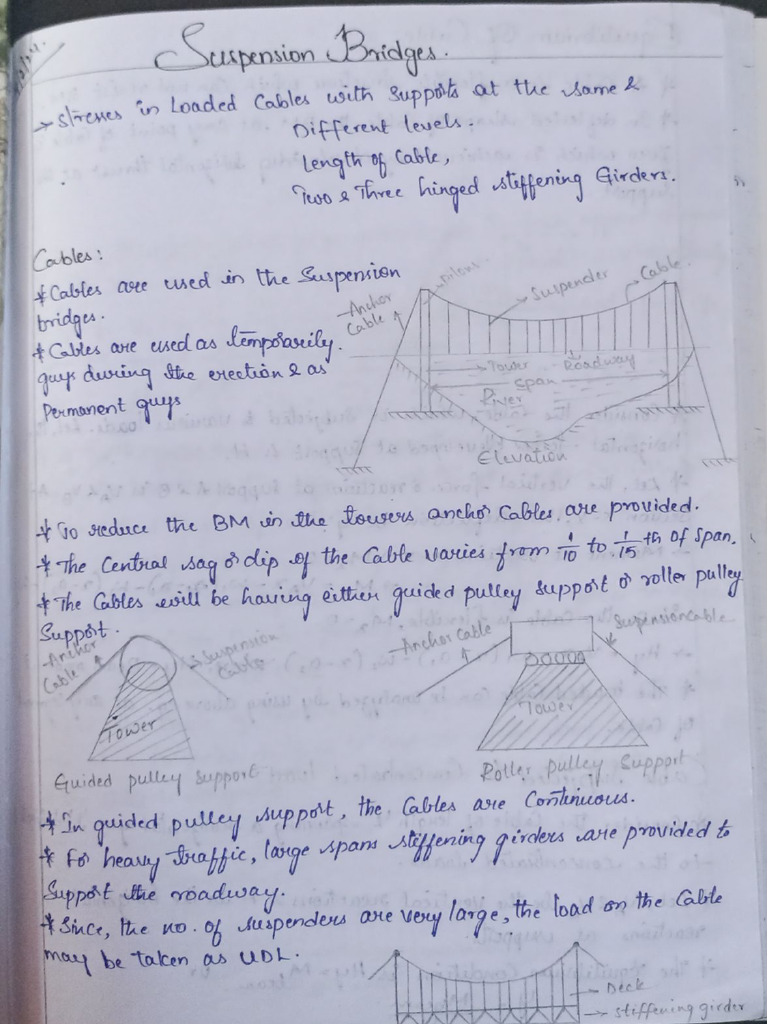 Suspension Bridges.
→ Stresses in Loaded Cables with Supports at the same &
Different levels,
Length of Cable,
Two & Three hinged stiffening Girders.
Cables:
* Cables are used in the Suspension
bridges.
* Cables are used as temporarily
guys during the erection & as
Permanent guys
Anchor
Cable
Suspender
Cable
Tower
Roadway
Span
River
Elevation
* To reduce the BM in the towers anchor Cables are provided.
* The Central sag or dip of the Cable varies from 1/10 to 1/15 th of Span.
* The Cables will be having either guided pulley support or roller pulley
Support.
Anchor
Cable
Suspension
Cable
Tower
Guided pulley support
Anchor Cable
Suspension cable
Tower
Roller pulley Support
* In guided pulley support, the Cables are Continuous.
* For heavy traffic, large spans stiffening girders are provided to
Support the roadway.
* Since, the no. of suspenders are very large, the load on the Cable
may be taken as UDL.
Deck
stiffening girder